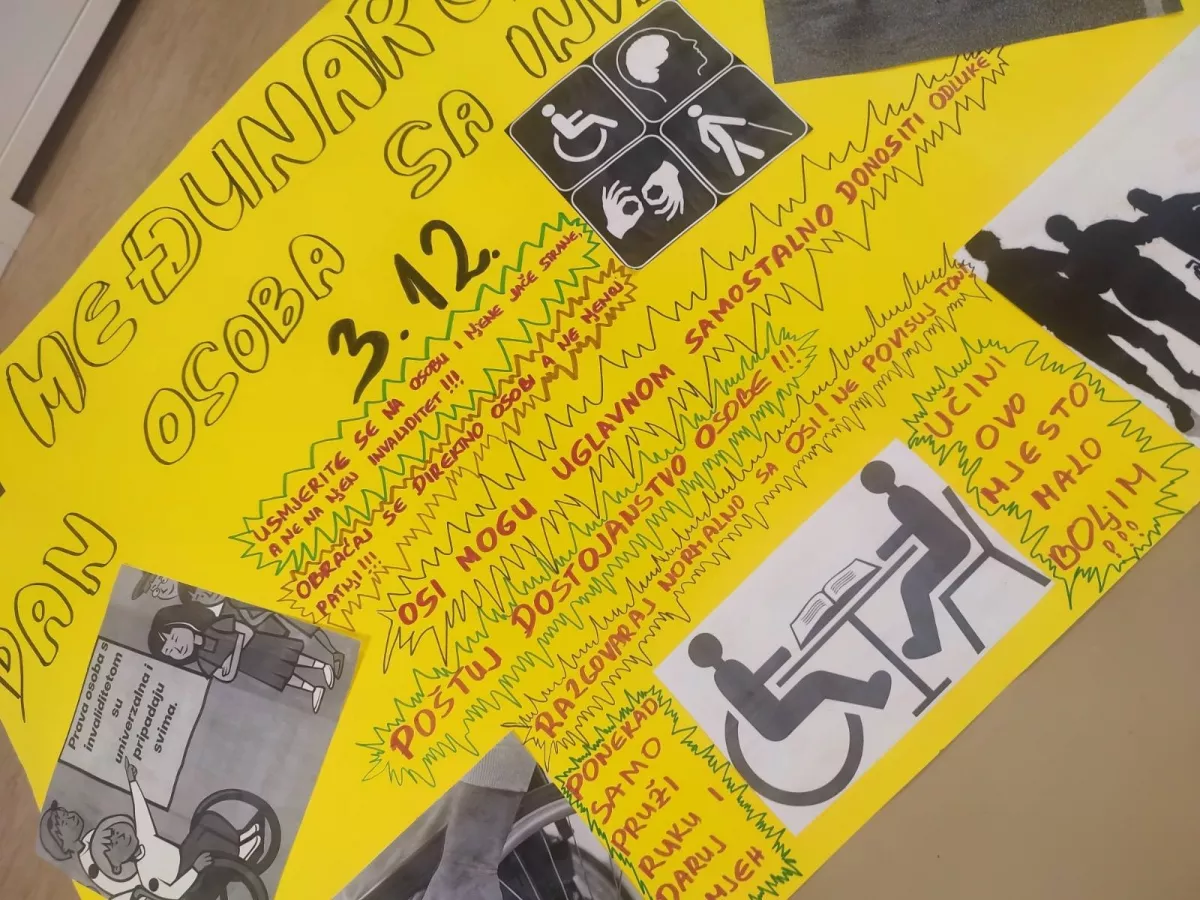 MEĐUNAR
DAN
OSOBA SA INV
3.12.
USMJERITE SE NA OSOBU I NJENE JAČE STRANE,
A NE NA NJEN INVALIDITET!!!
OBRAĆAJ SE DIREKTNO OSOBI A NE NJENOJ
PATNJI!!!
OSI MOGU UGLAVNOM SAMOSTALNO DONOSITI ODLUKE
POŠTUJ DOSTOJANSTVO OSOBE!!!
RAZGOVARAJ NORMALNO SA OSI I NE POVISUJ TON!
UČINI
OVO
MJESTO
MALO
BOLJIM
PONEKAD
SAMO
PRUŽI
RUKU I
DARUJ
MJEH
Prava osoba s
invaliditetom
su
univerzalna i
pripadaju
svima.